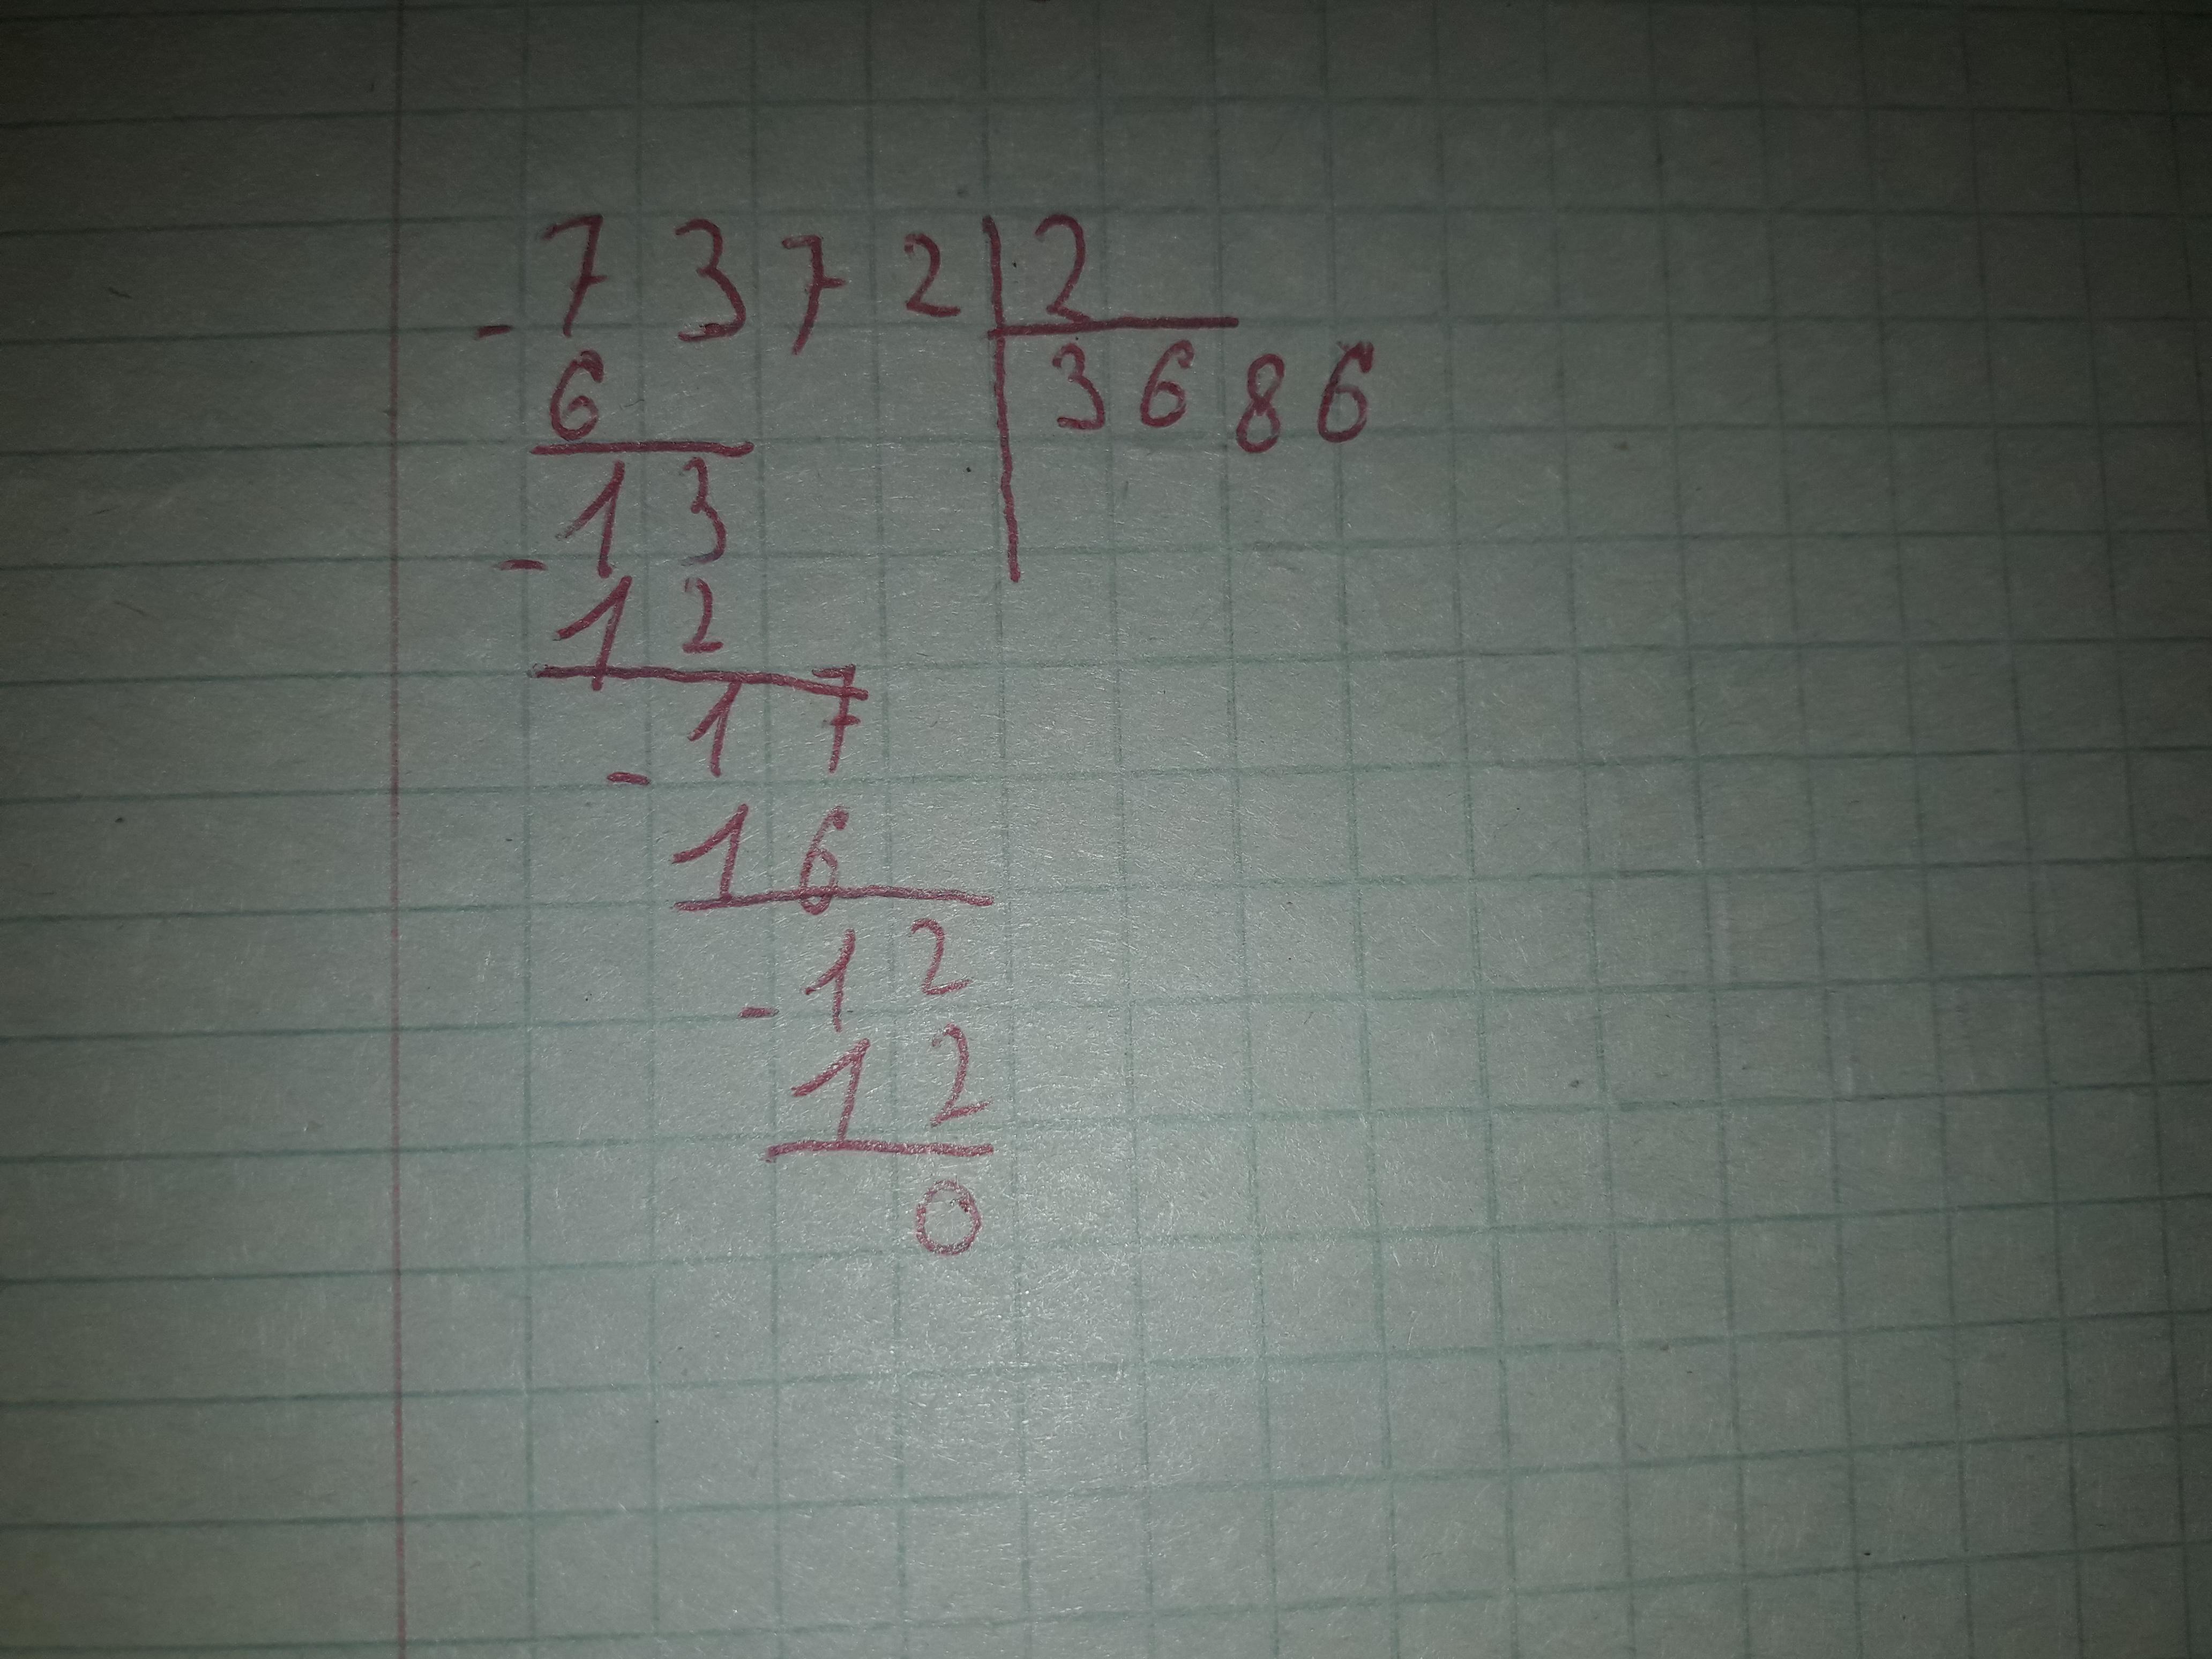 - 7 3 7 2 | 2
6 3 6 8 6
- 1 3
1 2
- 1 7
1 6
- 1 2
1 2
0